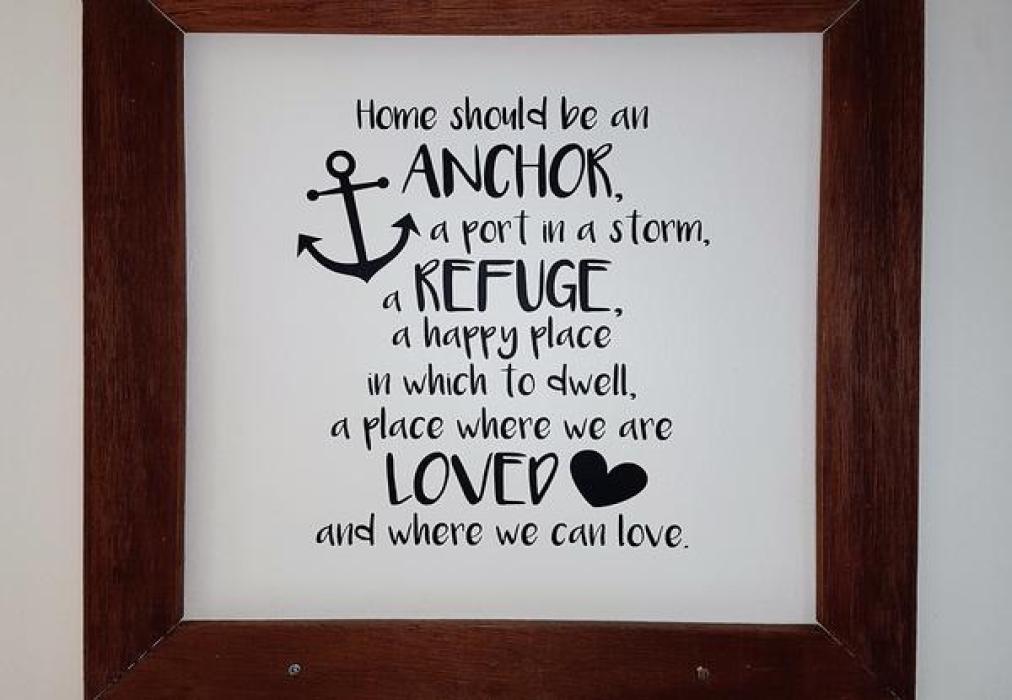 Home should be an
ANCHOR,
a port in a storm,
a REFUGE,
a happy place
in which to dwell,
a place where we are
LOVED
and where we can love.